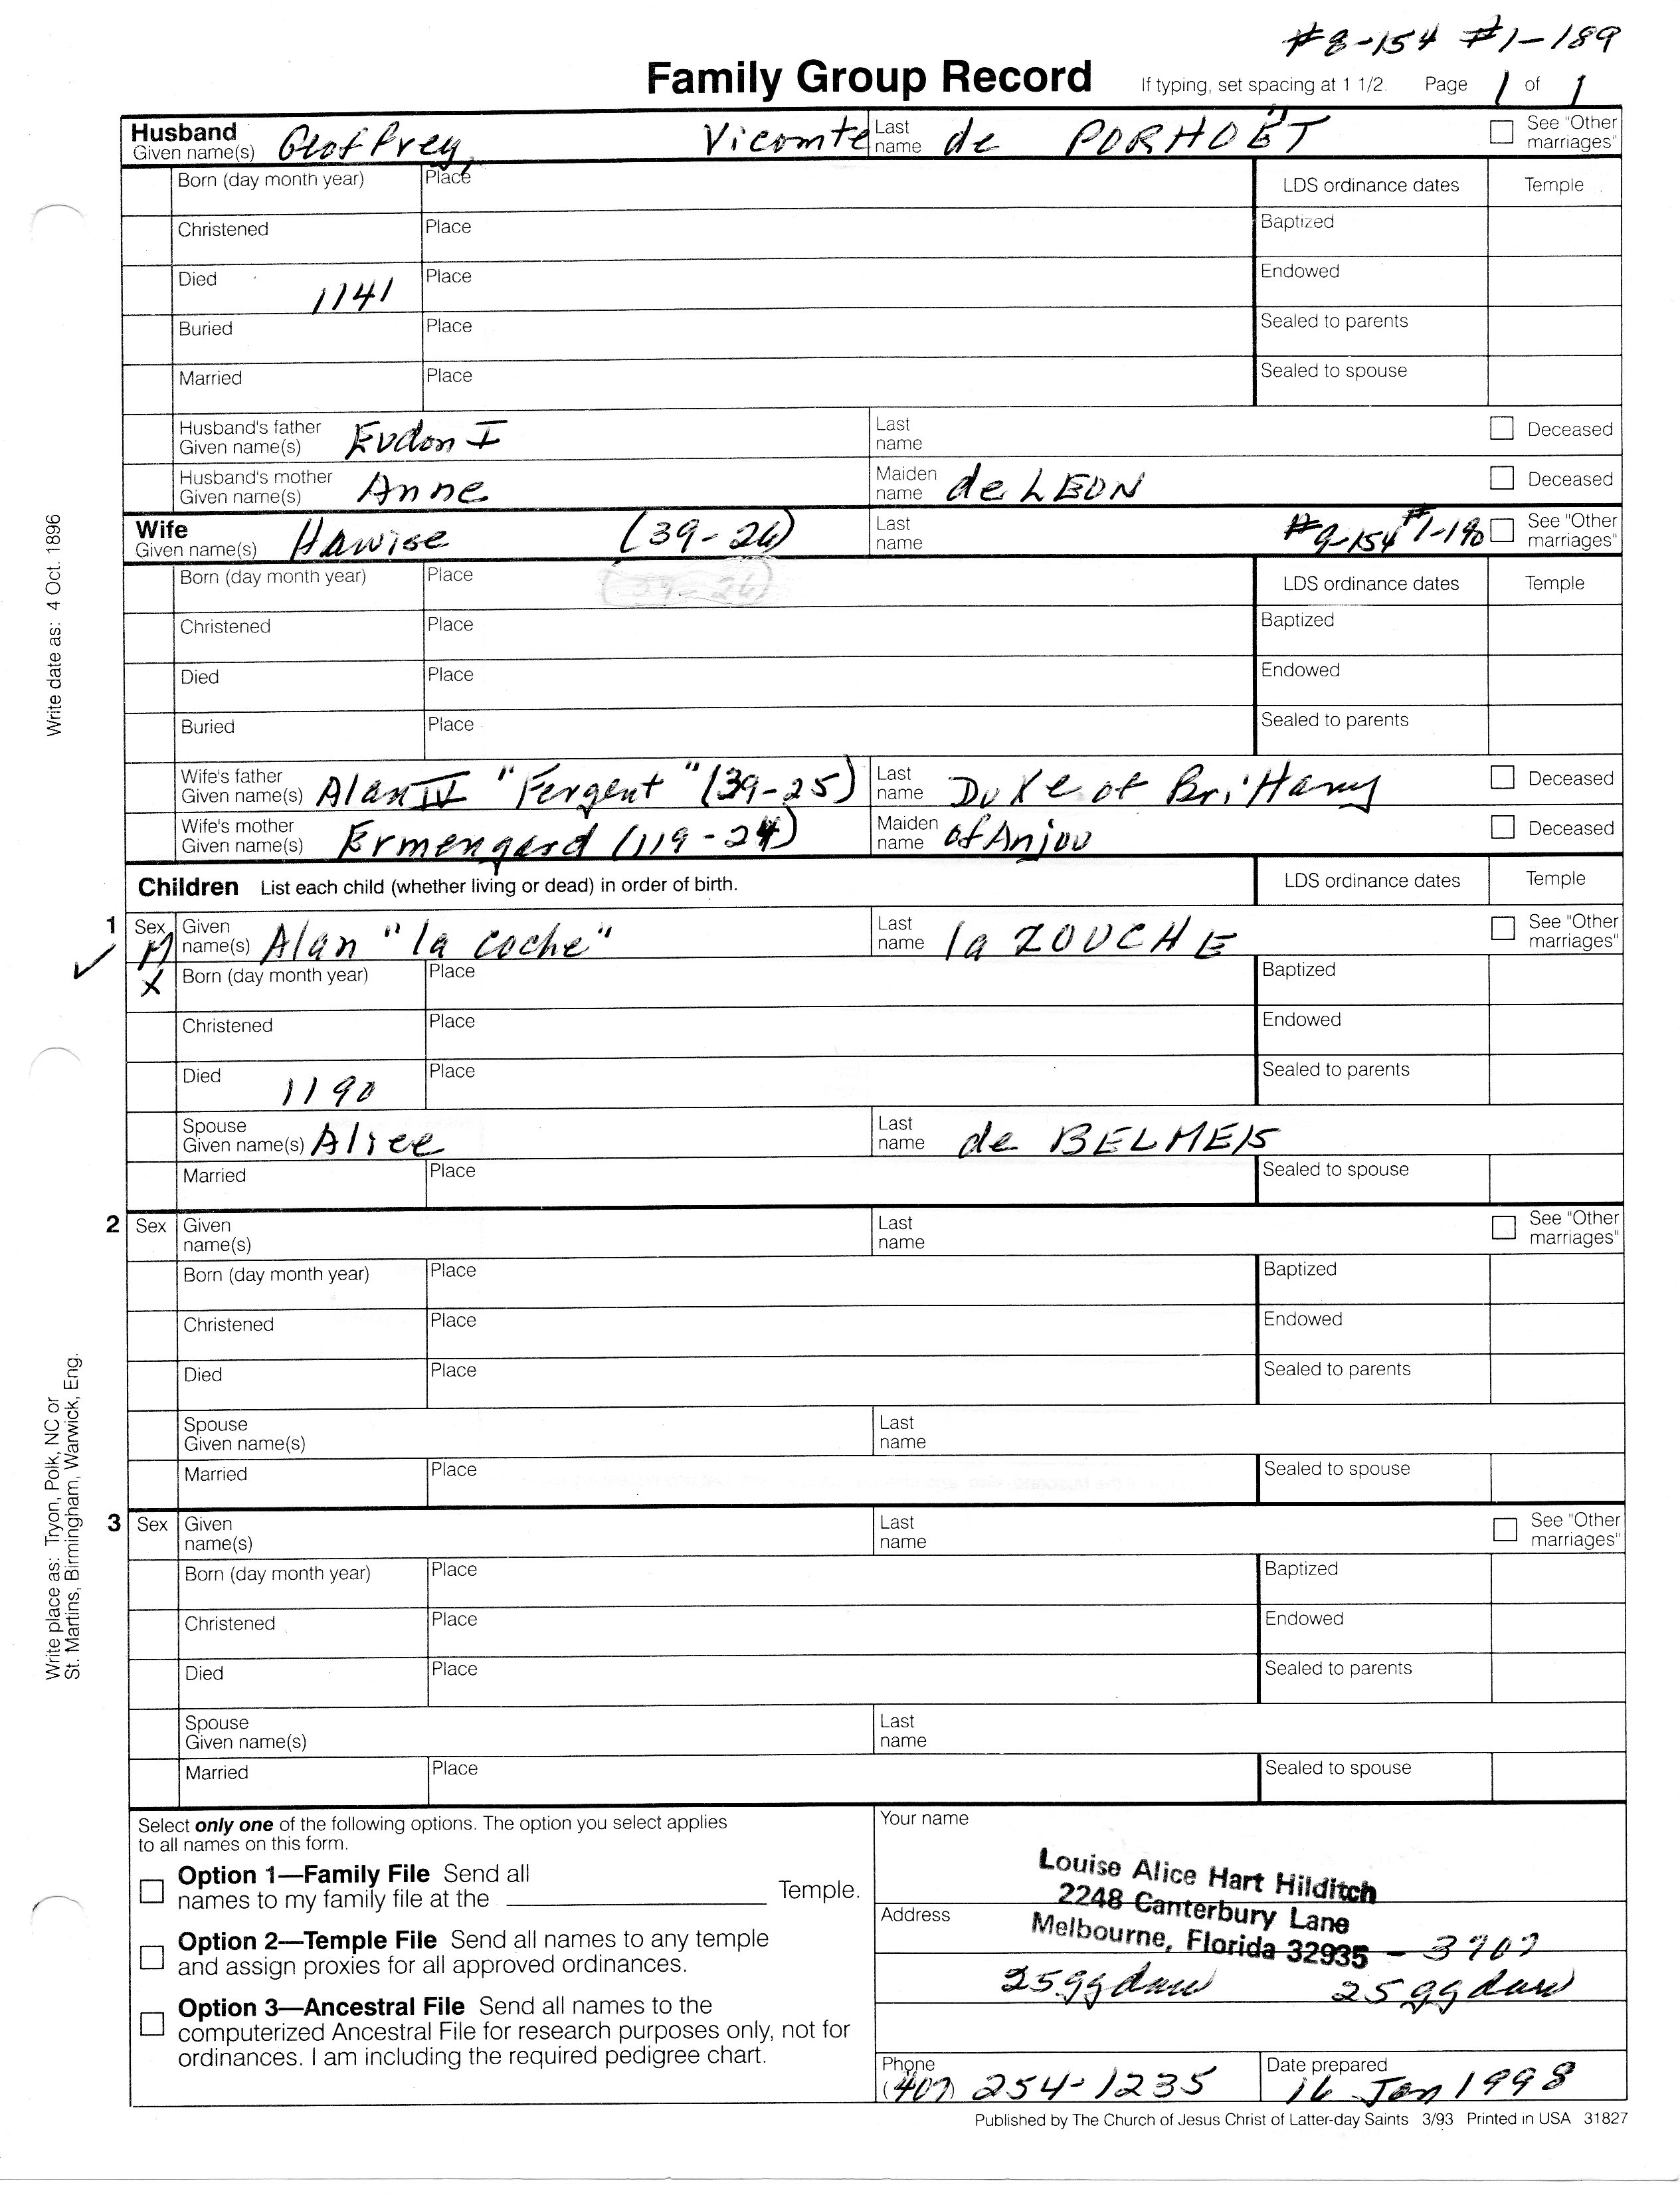 #8-154 #1-189
Family Group Record If typing, set spacing at 1 1/2. Page 1 of 1
Husband
Given name(s) Geoffrey, Vicomte Last name de PORHOËT See "Other marriages"
Born (day month year) Place LDS ordinance dates Temple
Christened Place Baptized
Died 1141 Place Endowed
Buried Place Sealed to parents
Married Place Sealed to spouse
Husband's father Given name(s) Eudon I Last name Deceased
Husband's mother Given name(s) Anne Maiden name de LEON Deceased
Wife
Given name(s) Hawise (39-26) Last name #9-154 #1-190 See "Other marriages"
Born (day month year) Place (39-26) LDS ordinance dates Temple
Christened Place Baptized
Died Place Endowed
Buried Place Sealed to parents
Wife's father Given name(s) Alan IV "Fergent" (39-25) Last name Duke of Brittany Deceased
Wife's mother Given name(s) Ermengard (119-24) Maiden name of Anjou Deceased
Children List each child (whether living or dead) in order of birth. LDS ordinance dates Temple
1 Sex M Given name(s) Alan "la coche" Last name la ZOUCHE See "Other marriages"
X Born (day month year) Place Baptized
Christened Place Endowed
Died 1190 Place Sealed to parents
Spouse Given name(s) Alice Last name de BELMEIS
Married Place Sealed to spouse
2 Sex Given name(s) Last name See "Other marriages"
Born (day month year) Place Baptized
Christened Place Endowed
Died Place Sealed to parents
Spouse Given name(s) Last name
Married Place Sealed to spouse
3 Sex Given name(s) Last name See "Other marriages"
Born (day month year) Place Baptized
Christened Place Endowed
Died Place Sealed to parents
Spouse Given name(s) Last name
Married Place Sealed to spouse
Select only one of the following options. The option you select applies
to all names on this form.
Option 1—Family File Send all
names to my family file at the Temple.
Option 2—Temple File Send all names to any temple
and assign proxies for all approved ordinances.
Option 3—Ancestral File Send all names to the
computerized Ancestral File for research purposes only, not for
ordinances. I am including the required pedigree chart.
Your name
Louise Alice Hart Hilditch
2248 Canterbury Lane
Address
Melbourne, Florida 32935 - 3707
25 gg dau 25 gg dau
Phone (407) 254-1235 Date prepared 16 Jan 1998
Published by The Church of Jesus Christ of Latter-day Saints 3/93 Printed in USA 31827
Write date as: 4 Oct. 1896
Write place as: Tryon, Polk, NC or
St. Martins, Birmingham, Warwick, Eng.